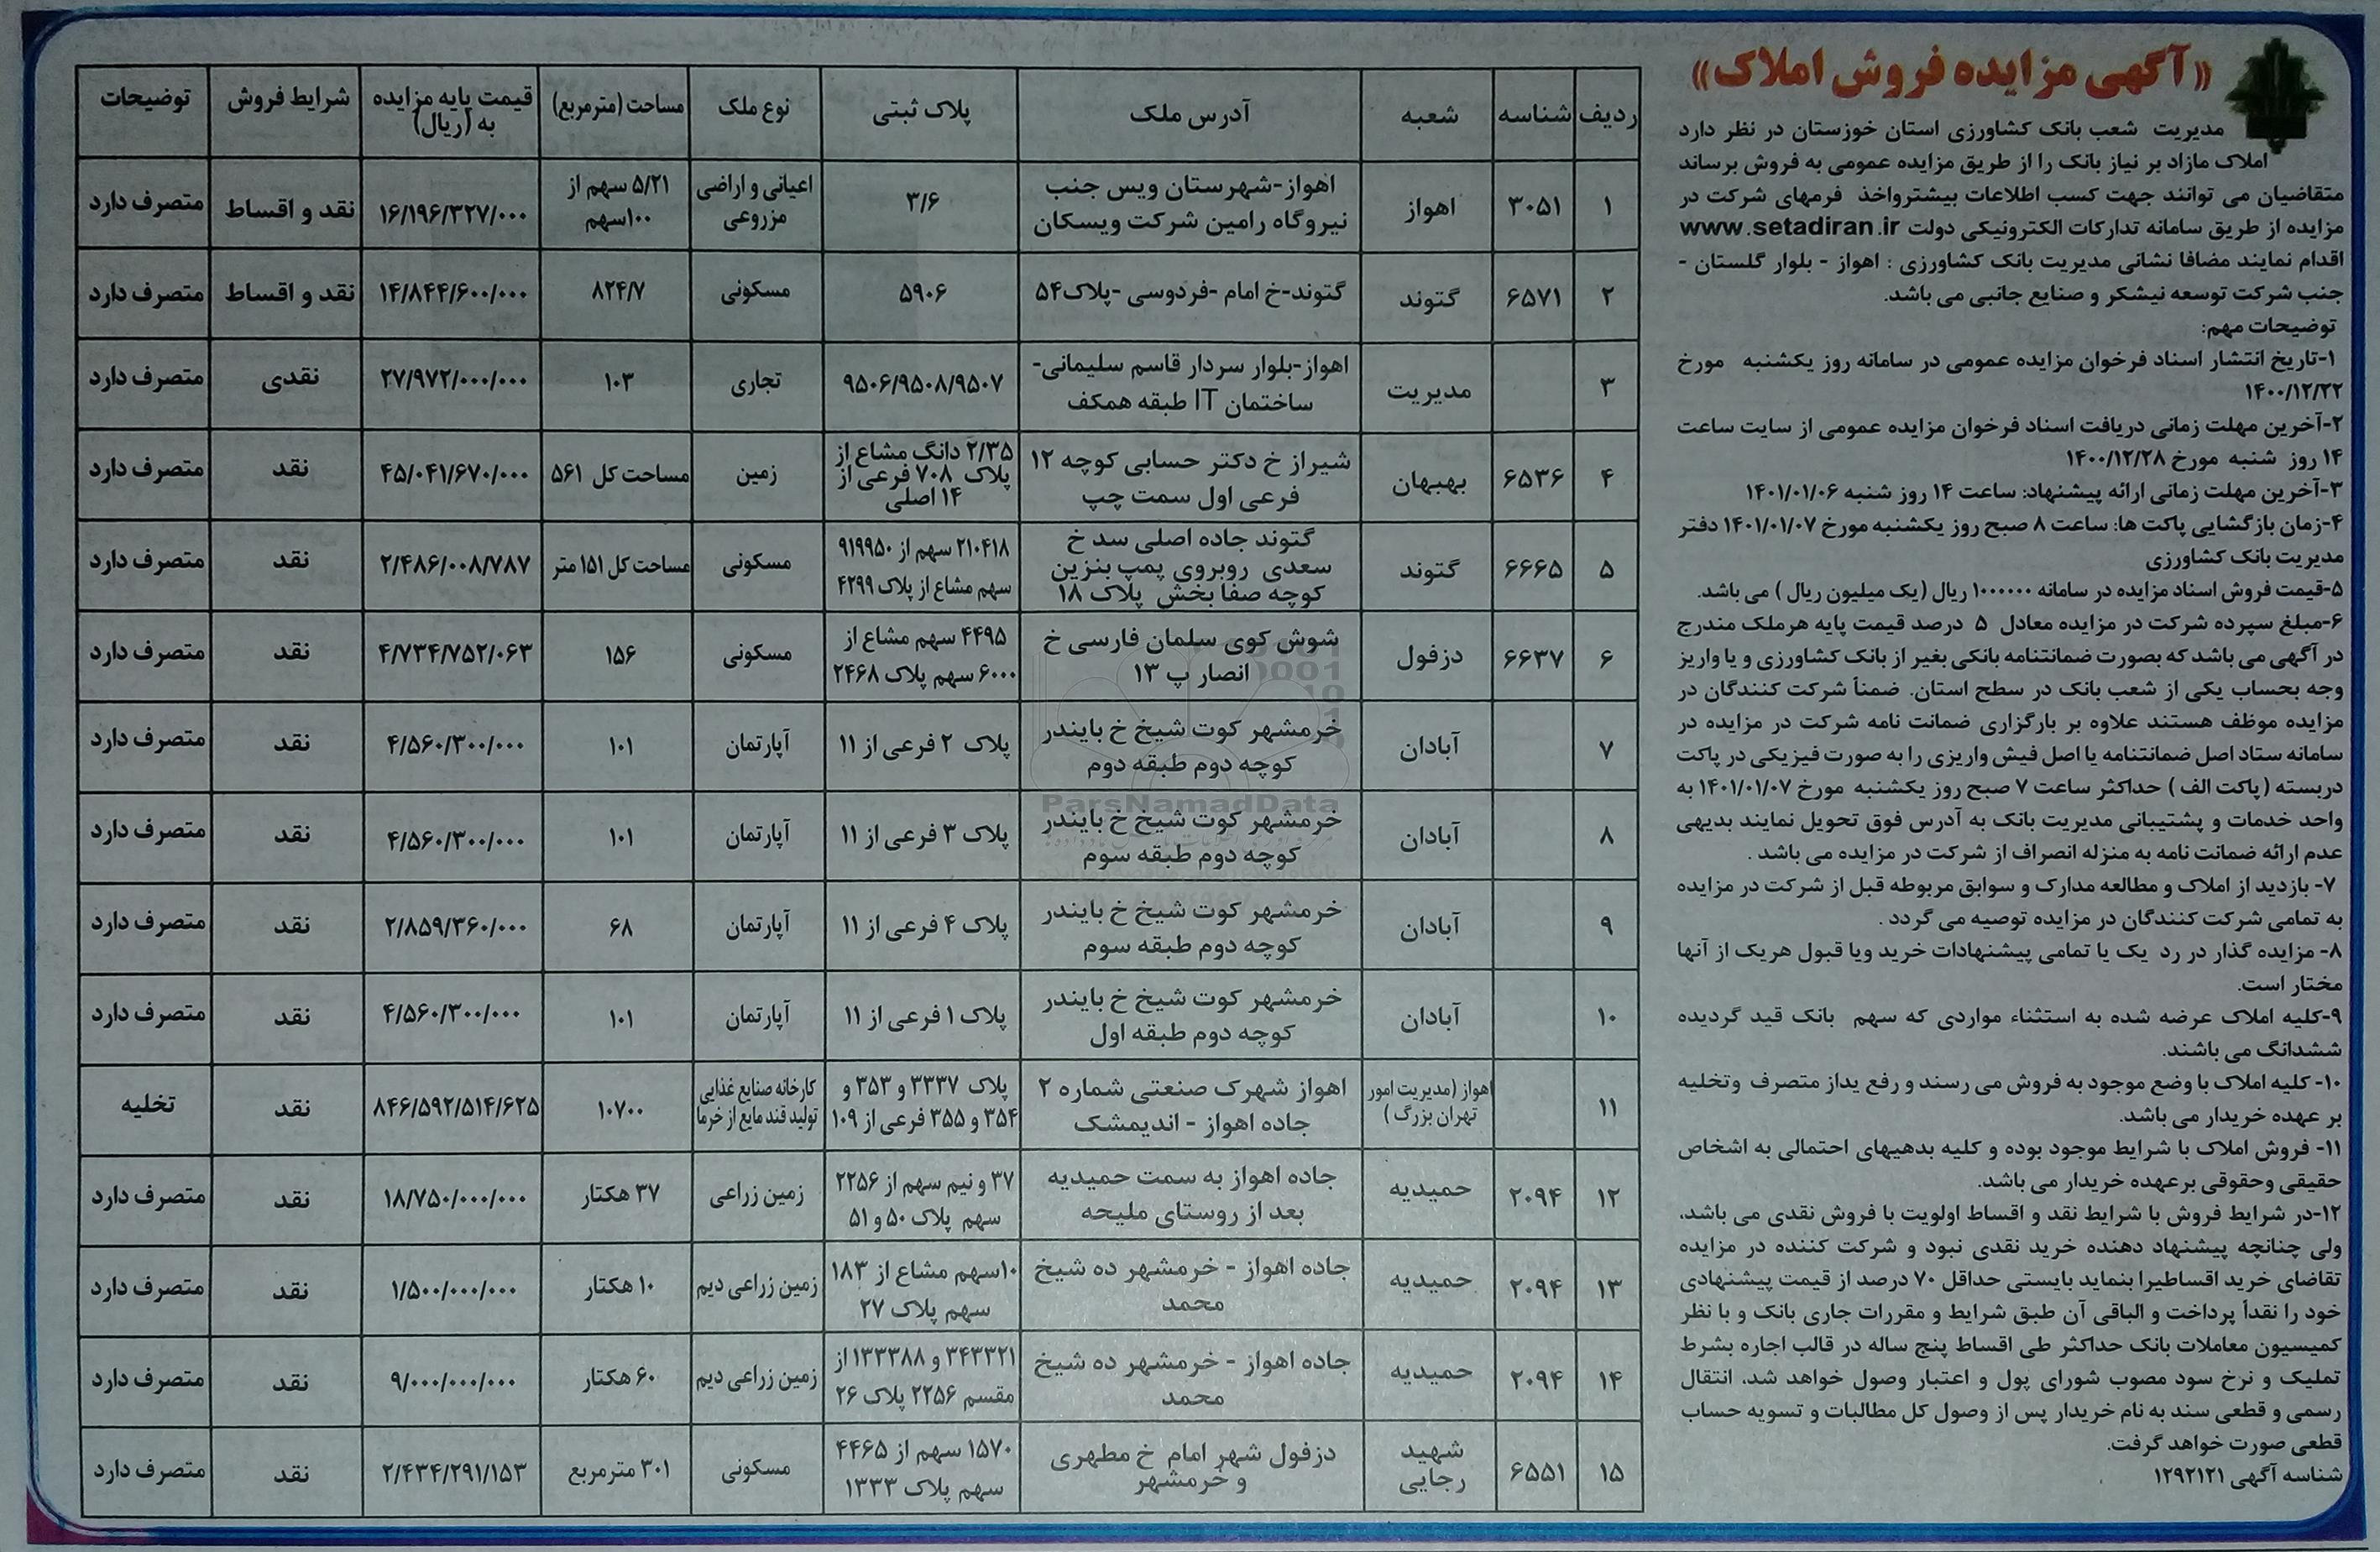 «آگهی مزایده فروش املاک»
مدیریت شعب بانک کشاورزی استان خوزستان در نظر دارد
املاک مازاد بر نیاز بانک را از طریق مزایده عمومی به فروش برساند
متقاضیان می توانند جهت کسب اطلاعات بیشترواخذ فرمهای شرکت در
مزایده از طریق سامانه تدارکات الکترونیکی دولت www.setadiran.ir
اقدام نمایند مضافا نشانی مدیریت بانک کشاورزی : اهواز - بلوار گلستان -
جنب شرکت توسعه نیشکر و صنایع جانبی می باشد.
توضیحات مهم:
۱-تاریخ انتشار اسناد فرخوان مزایده عمومی در سامانه روز یکشنبه مورخ
۱۴۰۰/۱۲/۲۲
۲-آخرین مهلت زمانی دریافت اسناد فرخوان مزایده عمومی از سایت ساعت
۱۴ روز شنبه مورخ ۱۴۰۰/۱۲/۲۸
۳-آخرین مهلت زمانی ارائه پیشنهاد: ساعت ۱۴ روز شنبه ۱۴۰۱/۰۱/۰۶
۴-زمان بازگشایی پاکت ها: ساعت ۸ صبح روز یکشنبه مورخ ۱۴۰۱/۰۱/۰۷ دفتر
مدیریت بانک کشاورزی
۵-قیمت فروش اسناد مزایده در سامانه ۱۰۰۰۰۰۰ ریال (یک میلیون ریال ) می باشد.
۶-مبلغ سپرده شرکت در مزایده معادل ۵ درصد قیمت پایه هرملک مندرج
در آگهی می باشد که بصورت ضمانتنامه بانکی بغیر از بانک کشاورزی و یا واریز
وجه بحساب یکی از شعب بانک در سطح استان. ضمناً شرکت کنندگان در
مزایده موظف هستند علاوه بر بارگزاری ضمانت نامه شرکت در مزایده در
سامانه ستاد اصل ضمانتنامه یا اصل فیش واریزی را به صورت فیزیکی در پاکت
دربسته (پاکت الف ) حداکثر ساعت ۷ صبح روز یکشنبه مورخ ۱۴۰۱/۰۱/۰۷ به
واحد خدمات و پشتیبانی مدیریت بانک به آدرس فوق تحویل نمایند بدیهی
عدم ارائه ضمانت نامه به منزله انصراف از شرکت در مزایده می باشد .
۷- بازدید از املاک و مطالعه مدارک و سوابق مربوطه قبل از شرکت در مزایده
به تمامی شرکت کنندگان در مزایده توصیه می گردد .
۸- مزایده گذار در رد یک یا تمامی پیشنهادات خرید ویا قبول هریک از آنها
مختار است.
۹-کلیه املاک عرضه شده به استثناء مواردی که سهم بانک قید گردیده
ششدانگ می باشند.
۱۰- کلیه املاک با وضع موجود به فروش می رسند و رفع یداز متصرف وتخلیه
بر عهده خریدار می باشد.
۱۱- فروش املاک با شرایط موجود بوده و کلیه بدهیهای احتمالی به اشخاص
حقیقی وحقوقی برعهده خریدار می باشد.
۱۲-در شرایط فروش با شرایط نقد و اقساط اولویت با فروش نقدی می باشد،
ولی چنانچه پیشنهاد دهنده خرید نقدی نبود و شرکت کننده در مزایده
تقاضای خرید اقساطیرا بنماید بایستی حداقل ۷۰ درصد از قیمت پیشنهادی
خود را نقداً پرداخت و الباقی آن طبق شرایط و مقررات جاری بانک و با نظر
کمیسیون معاملات بانک حداکثر طی اقساط پنج ساله در قالب اجاره بشرط
تملیک و نرخ سود مصوب شورای پول و اعتبار وصول خواهد شد، انتقال
رسمی و قطعی سند به نام خریدار پس از وصول کل مطالبات و تسویه حساب
قطعی صورت خواهد گرفت.
شناسه آگهی ۱۲۹۲۱۲۱
ردیف شناسه شعبه آدرس ملک پلاک ثبتی نوع ملک مساحت (مترمربع) قیمت پایه مزایده به (ریال) شرایط فروش توضیحات
۱ ۳۰۵۱ اهواز اهواز-شهرستان ویس جنب نیروگاه رامین شرکت ویسکان ۳/۶ اعیانی و اراضی مزروعی ۵/۲۱ سهم از ۱۰۰سهم ۱۶/۱۹۶/۳۲۷/۰۰۰ نقد و اقساط متصرف دارد
۲ ۶۵۷۱ گتوند گتوند-خ امام -فردوسی -پلاک۵۴ ۵۹۰۶ مسکونی ۸۲۴/۷ ۱۴/۸۴۴/۶۰۰/۰۰۰ نقد و اقساط متصرف دارد
۳ مدیریت اهواز-بلوار سردار قاسم سلیمانی- ساختمان IT طبقه همکف ۹۵۰۶/۹۵۰۸/۹۵۰۷ تجاری ۱۰۳ ۲۷/۹۷۲/۰۰۰/۰۰۰ نقدی متصرف دارد
۴ ۶۵۳۶ بهبهان شیراز خ دکتر حسابی کوچه ۱۲ فرعی اول سمت چپ ۲/۳۵ دانگ مشاع از پلاک ۷۰۸ فرعی از ۱۴ اصلی زمین مساحت کل ۵۶۱ ۴۵/۰۴۱/۶۷۰/۰۰۰ نقد متصرف دارد
۵ ۶۶۶۵ گتوند گتوند جاده اصلی سد خ سعدی روبروی پمپ بنزین کوچه صفا بخش پلاک ۱۸ ۲۱۰۴۱۸ سهم از ۹۱۹۹۵۰ سهم مشاع از پلاک ۴۲۹۹ مسکونی مساحت کل ۱۵۱ متر ۲/۴۸۶/۰۰۸/۷۸۷ نقد متصرف دارد
۶ ۶۶۳۷ دزفول شوش کوی سلمان فارسی خ انصار پ ۱۳ ۴۴۹۵ سهم مشاع از ۶۰۰۰ سهم پلاک ۲۴۶۸ مسکونی ۱۵۶ ۴/۷۳۴/۷۵۲/۰۶۳ نقد متصرف دارد
۷ آبادان خرمشهر کوت شیخ خ بایندر کوچه دوم طبقه دوم پلاک ۲ فرعی از ۱۱ آپارتمان ۱۰۱ ۴/۵۶۰/۳۰۰/۰۰۰ نقد متصرف دارد
ParsNamadData
۸ آبادان خرمشهر کوت شیخ خ بایندر کوچه دوم طبقه سوم پلاک ۳ فرعی از ۱۱ آپارتمان ۱۰۱ ۴/۵۶۰/۳۰۰/۰۰۰ نقد متصرف دارد
۹ آبادان خرمشهر کوت شیخ خ بایندر کوچه دوم طبقه سوم پلاک ۴ فرعی از ۱۱ آپارتمان ۶۸ ۲/۸۵۹/۳۶۰/۰۰۰ نقد متصرف دارد
۱۰ آبادان خرمشهر کوت شیخ خ بایندر کوچه دوم طبقه اول پلاک ۱ فرعی از ۱۱ آپارتمان ۱۰۱ ۴/۵۶۰/۳۰۰/۰۰۰ نقد متصرف دارد
۱۱ اهواز (مدیریت امور تهران بزرگ ) اهواز شهرک صنعتی شماره ۲ جاده اهواز - اندیمشک پلاک ۳۳۳۷ و ۳۵۳ و ۳۵۴ و ۳۵۵ فرعی از ۱۰۹ کارخانه صنایع غذایی تولید قند مایع از خرما ۱۰۷۰۰ ۸۴۶/۵۹۲/۵۱۴/۶۲۵ نقد تخلیه
۱۲ ۲۰۹۴ حمیدیه جاده اهواز به سمت حمیدیه بعد از روستای ملیحه ۳۷ و نیم سهم از ۲۲۵۶ سهم پلاک ۵۰ و ۵۱ زمین زراعی ۳۷ هکتار ۱۸/۷۵۰/۰۰۰/۰۰۰ نقد متصرف دارد
۱۳ ۲۰۹۴ حمیدیه جاده اهواز - خرمشهر ده شیخ محمد ۱۰سهم مشاع از ۱۸۳ سهم پلاک ۲۷ زمین زراعی دیم ۱۰ هکتار ۱/۵۰۰/۰۰۰/۰۰۰ نقد متصرف دارد
۱۴ ۲۰۹۴ حمیدیه جاده اهواز - خرمشهر ده شیخ محمد ۳۴۳۳۲۱ و ۱۳۳۳۸۸ از مقسم ۲۲۵۶ پلاک ۲۶ زمین زراعی دیم ۶۰ هکتار ۹/۰۰۰/۰۰۰/۰۰۰ نقد متصرف دارد
۱۵ ۶۵۵۱ شهید رجایی دزفول شهر امام خ مطهری و خرمشهر ۱۵۷۰ سهم از ۴۴۶۵ سهم پلاک ۱۳۳۳ مسکونی ۳۰۱ مترمربع ۲/۴۳۴/۲۹۱/۱۵۳ نقد متصرف دارد